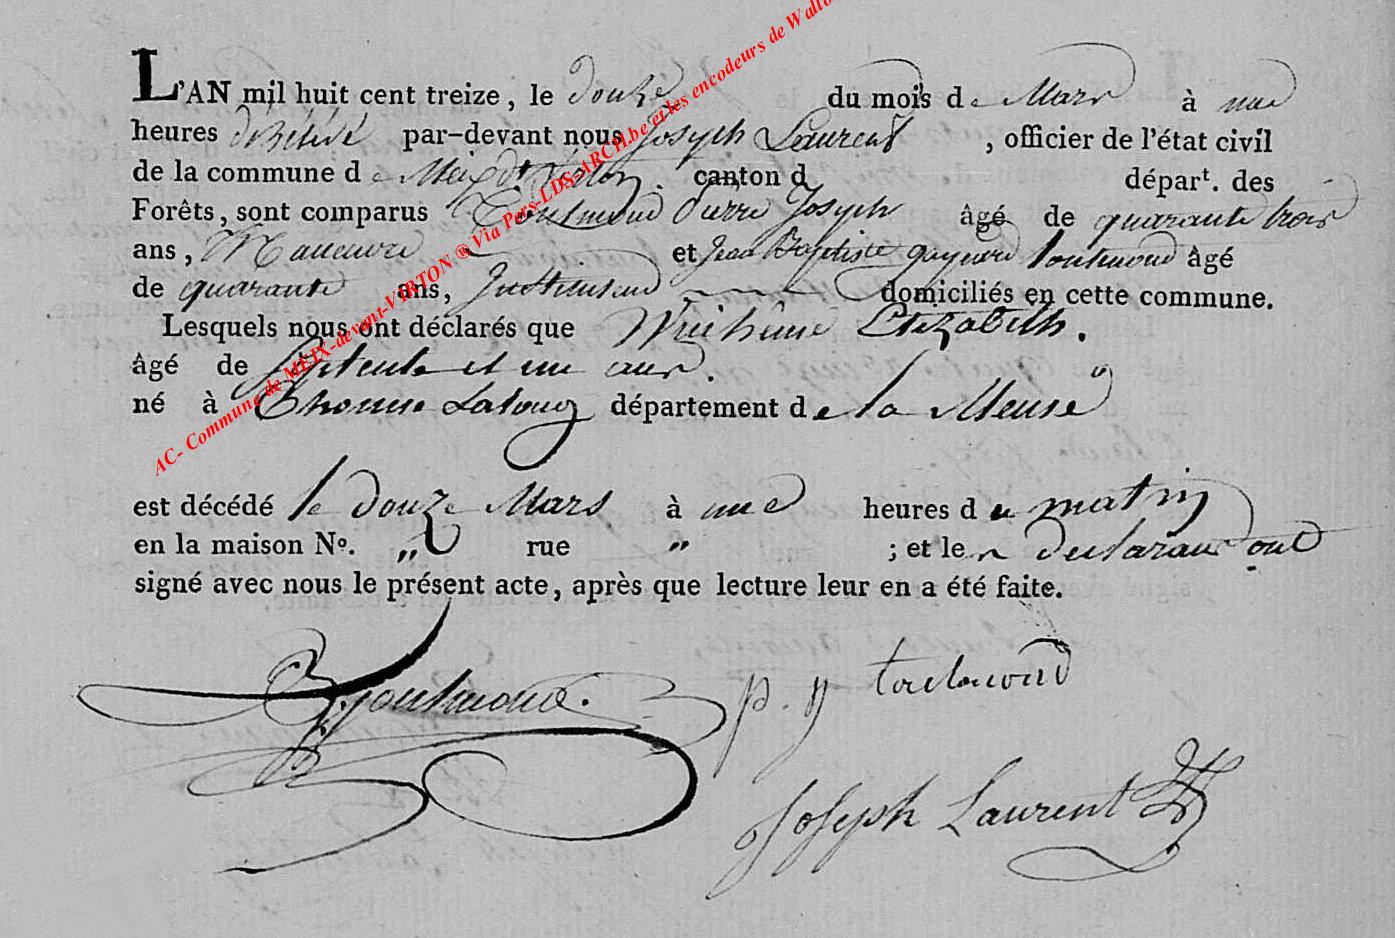 L'AN mil huit cent treize, le douze du mois de Mars à une
heures de relevé par-devant nous Joseph Laurent, officier de l'état civil
de la commune de Meix dt Virton. canton d dépar^t. des
Forêts, sont comparus Toutmond Pierre Joseph âgé de quarante trois
ans, Maneuvre et Jean Baptiste Toutmond âgé
de quarante ans, domiciliés en cette commune.
Lesquels nous ont déclarés que Elizabeth.
âgé de septente et un ans.
né à Thonne Lalong département de la Meuse
est décédé le douze Mars à une heures du matin
en la maison N°. " rue " ; et les declarans ont
signé avec nous le présent acte, après que lecture leur en a été faite.
toutmond.
p. j toutmond
Joseph Laurent
AC- Commune de MEIX-devant-VIRTON ® Via Pers-LDS-ARCH.be et les encodeurs de Wallo